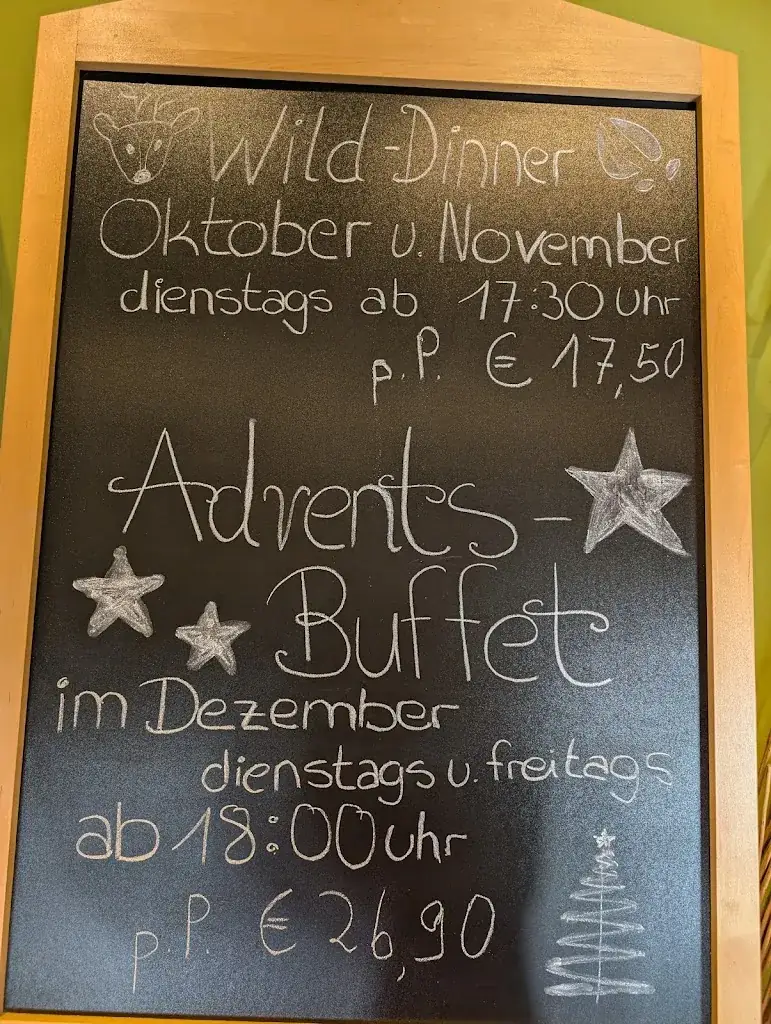 Wild-Dinner
Oktober u. November
dienstags ab 17:30 Uhr
p.P. € 17,50
Advents-
Buffet
im Dezember
dienstags u. freitags
ab 18:00 uhr
p.P. € 26,90